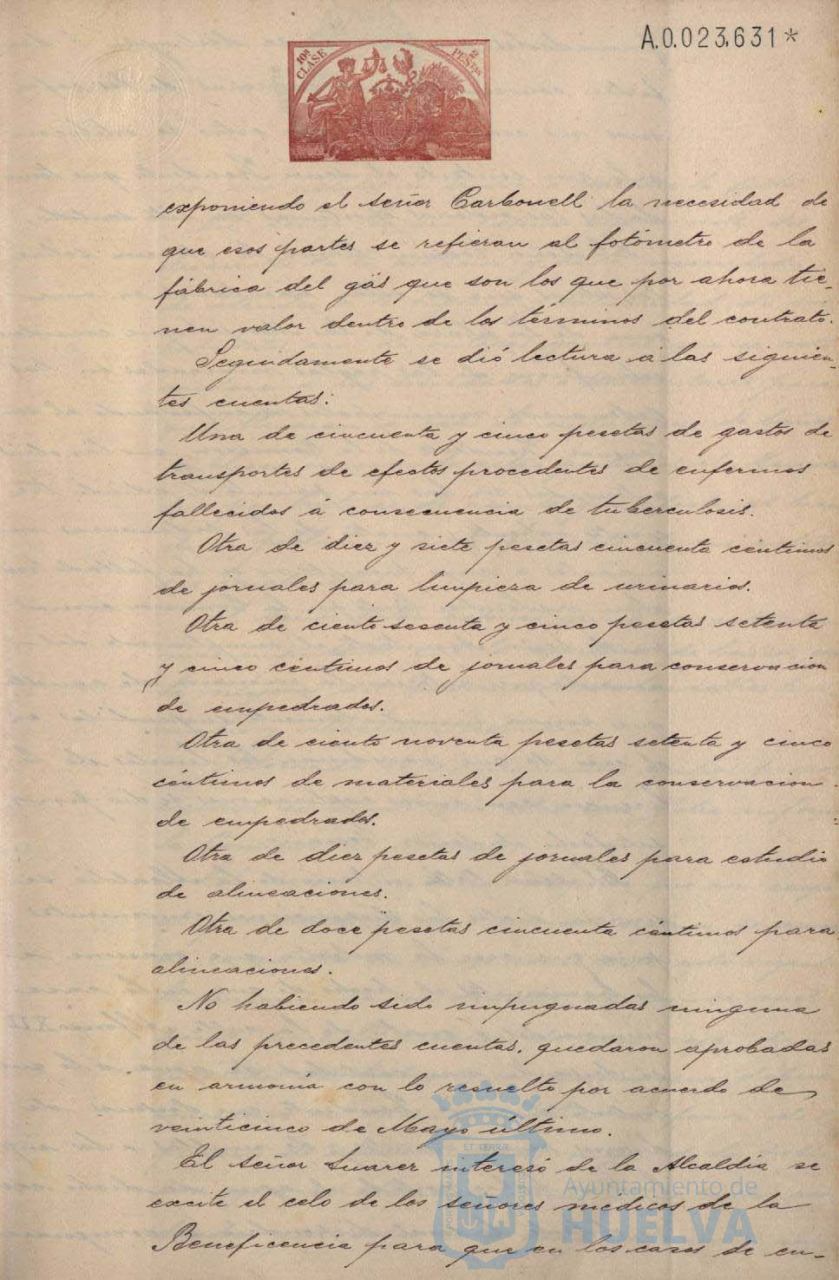 A.0.023,631*
10ª CLASE
2 PESETAS
exponiendo el señor Carbonell la necesidad de
que esos partes se refieran al fotómetro de la
fábrica del gás que son los que por ahora tie-
nen valor dentro de los términos del contrato.
Seguidamente se dió lectura á las siguien-
tes cuentas:
Una de cincuenta y cinco pesetas de gastos de
transportes de efectos procedentes de enfermos
fallecidos á consecuencia de tuberculosis.
Otra de diez y siete pesetas cincuenta céntimos
de jornales para limpieza de urinarios.
Otra de ciento sesenta y cinco pesetas setenta
y cinco céntimos de jornales para conservacion
de empedrados.
Otra de ciento noventa pesetas setenta y cinco
céntimos de materiales para la conservacion
de empedrados.
Otra de diez pesetas de jornales para estudio
de alineaciones.
Otra de doce pesetas cincuenta céntimos para
alineaciones.
No habiendo sido impugnadas ninguna
de las precedentes cuentas, quedaron aprobadas
en armonía con lo resuelto por acuerdo de
veinticinco de Mayo último.
El señor Suarez interesó de la Alcaldía se
excite el celo de los señores medicos de la
Beneficencia para que en los casos de en-
Ayuntamiento de
HUELVA